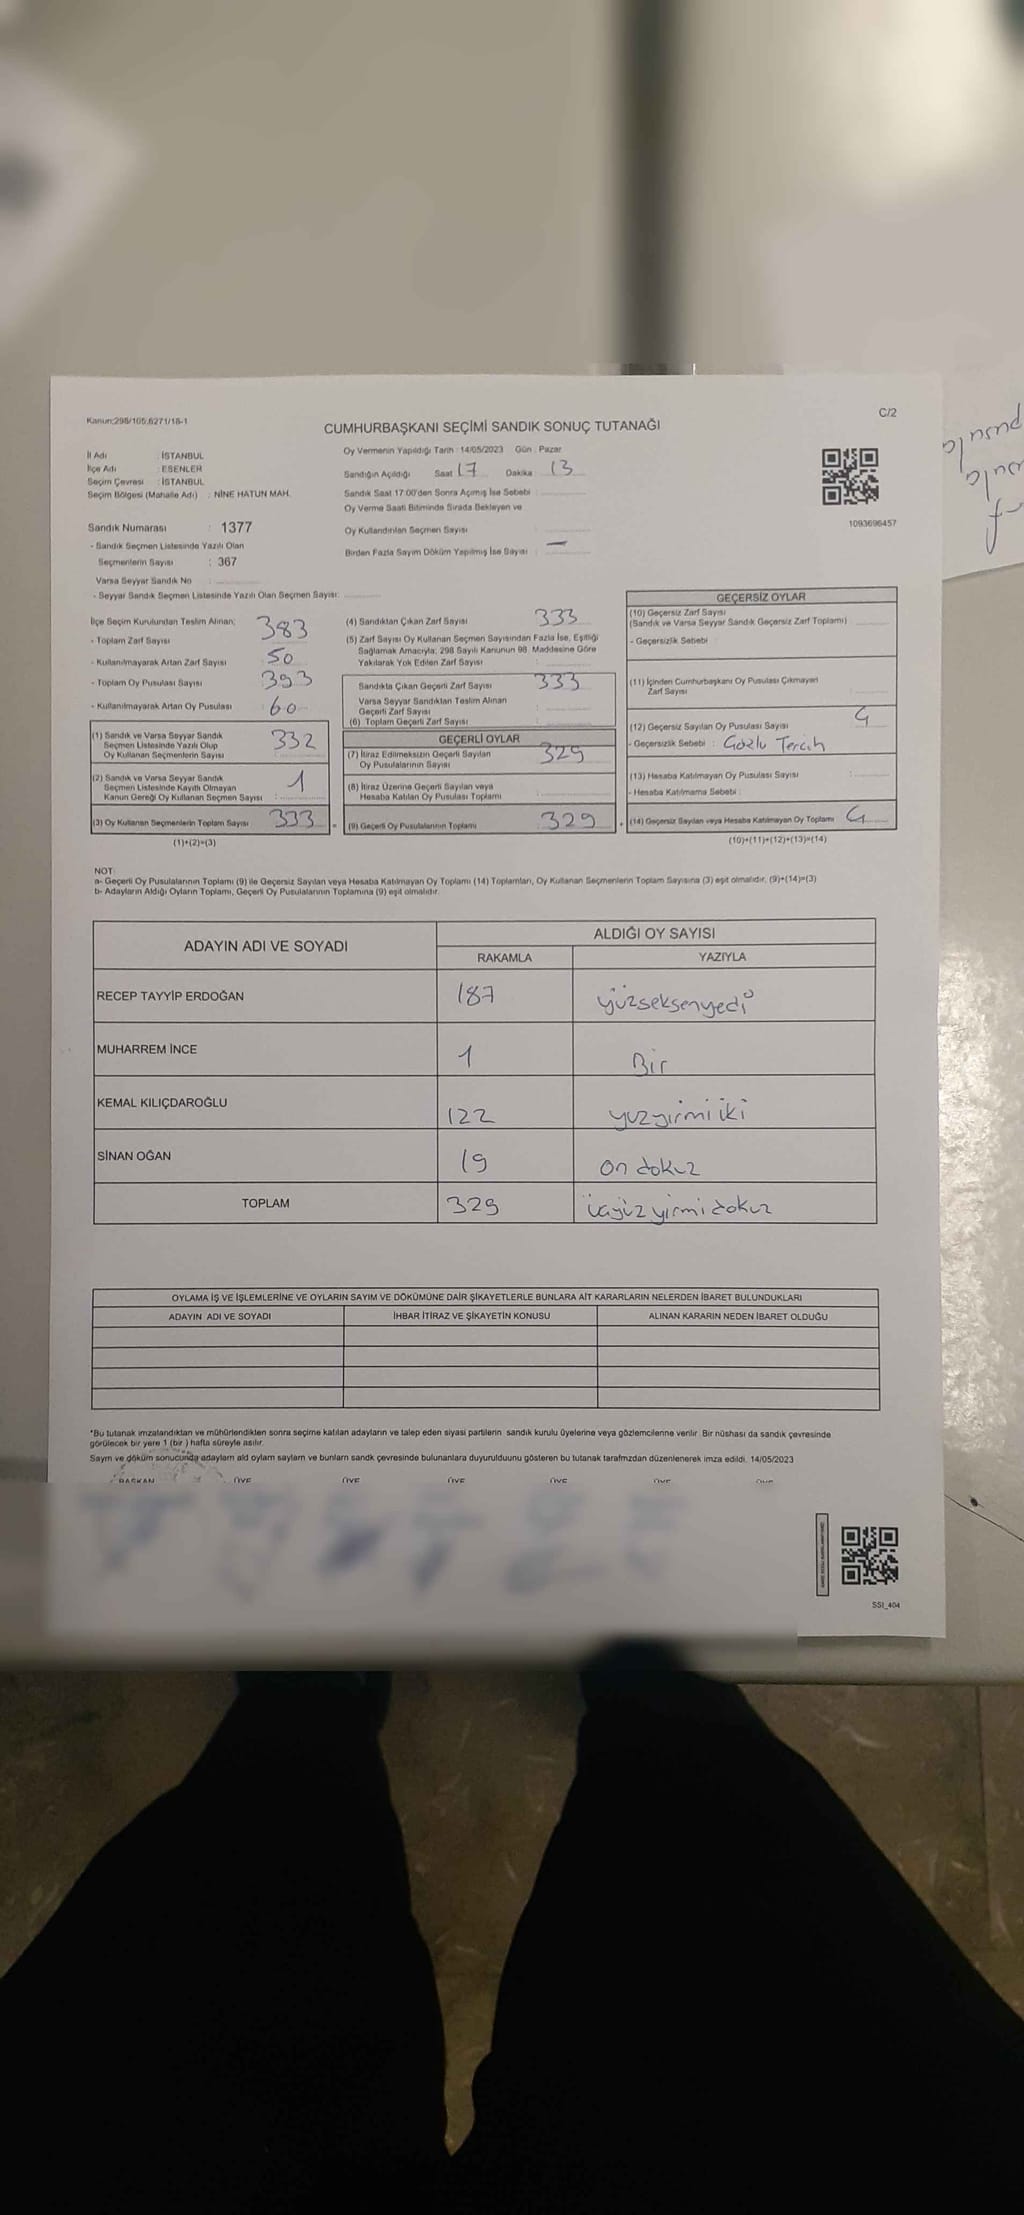 Kanun:298/105;6271/18-1
C/2
CUMHURBAŞKANI SEÇİMİ SANDIK SONUÇ TUTANAĞI
İl Adı : İSTANBUL
İlçe Adı : ESENLER
Seçim Çevresi : İSTANBUL
Seçim Bölgesi (Mahalle Adı) : NİNE HATUN MAH.
Oy Vermenin Yapıldığı Tarih : 14/05/2023 Gün : Pazar
Sandığın Açıldığı Saat 17 Dakika 13
Sandık Saat 17:00'den Sonra Açılmış İse Sebebi :
Oy Verme Saati Bitiminde Sırada Bekleyen ve
Oy Kullandırılan Seçmen Sayısı :
Birden Fazla Sayım Döküm Yapılmış İse Sayısı : —
1093696457
Sandık Numarası : 1377
- Sandık Seçmen Listesinde Yazılı Olan
Seçmenlerin Sayısı : 367
Varsa Seyyar Sandık No :
- Seyyar Sandık Seçmen Listesinde Yazılı Olan Seçmen Sayısı:
İlçe Seçim Kurulundan Teslim Alınan;
- Toplam Zarf Sayısı 383
- Kullanılmayarak Artan Zarf Sayısı 50
- Toplam Oy Pusulası Sayısı 393
- Kullanılmayarak Artan Oy Pusulası 60
(1) Sandık ve Varsa Seyyar Sandık
Seçmen Listesinde Yazılı Olup
Oy Kullanan Seçmenlerin Sayısı 332
(2) Sandık ve Varsa Seyyar Sandık
Seçmen Listesinde Kayıtlı Olmayan
Kanun Gereği Oy Kullanan Seçmen Sayısı : 1
(3) Oy Kullanan Seçmenlerin Toplam Sayısı 333
(1)+(2)=(3)
(4) Sandıktan Çıkan Zarf Sayısı 333
(5) Zarf Sayısı Oy Kullanan Seçmen Sayısından Fazla İse, Eşitliği
Sağlamak Amacıyla; 298 Sayılı Kanunun 98. Maddesine Göre
Yakılarak Yok Edilen Zarf Sayısı :
Sandıkta Çıkan Geçerli Zarf Sayısı 333
Varsa Seyyar Sandıktan Teslim Alınan
Geçerli Zarf Sayısı :
(6) Toplam Geçerli Zarf Sayısı :
GEÇERLİ OYLAR
(7) İtiraz Edilmeksizin Geçerli Sayılan
Oy Pusulalarının Sayısı 329
(8) İtiraz Üzerine Geçerli Sayılan veya
Hesaba Katılan Oy Pusulası Toplamı
(9) Geçerli Oy Pusulalarının Toplamı 329
GEÇERSİZ OYLAR
(10) Geçersiz Zarf Sayısı
(Sandık ve Varsa Seyyar Sandık Geçersiz Zarf Toplamı)
- Geçersizlik Sebebi :
(11) İçinden Cumhurbaşkanı Oy Pusulası Çıkmayan
Zarf Sayısı
(12) Geçersiz Sayılan Oy Pusulası Sayısı 4
- Geçersizlik Sebebi :
(13) Hesaba Katılmayan Oy Pusulası Sayısı
- Hesaba Katılmama Sebebi :
(14) Geçersiz Sayılan veya Hesaba Katılmayan Oy Toplamı 4
(10)+(11)+(12)+(13)=(14)
NOT:
a- Geçerli Oy Pusulalarının Toplamı (9) ile Geçersiz Sayılan veya Hesaba Katılmayan Oy Toplamı (14) Toplamları, Oy Kullanan Seçmenlerin Toplam Sayısına (3) eşit olmalıdır, (9)+(14)=(3)
b- Adayların Aldığı Oyların Toplamı, Geçerli Oy Pusulalarının Toplamına (9) eşit olmalıdır.
ADAYIN ADI VE SOYADI ALDIĞI OY SAYISI
RAKAMLA YAZIYLA
RECEP TAYYİP ERDOĞAN 187 yüzseksenyedi
MUHARREM İNCE 1 Bir
KEMAL KILIÇDAROĞLU 122 yuzyirmi iki
SİNAN OĞAN 19 on dokuz
TOPLAM 329 üçyüz yirmi dokuz
OYLAMA İŞ VE İŞLEMLERİNE VE OYLARIN SAYIM VE DÖKÜMÜNE DAİR ŞİKAYETLERLE BUNLARA AİT KARARLARIN NELERDEN İBARET BULUNDUKLARI
ADAYIN ADI VE SOYADI İHBAR İTİRAZ VE ŞİKAYETİN KONUSU ALINAN KARARIN NEDEN İBARET OLDUĞU
*Bu tutanak imzalandıktan ve mühürlendikten sonra seçime katılan adayların ve talep eden siyasi partilerin sandık kurulu üyelerine veya gözlemcilerine verilir. Bir nüshası da sandık çevresinde
görülecek bir yere 1 (bir ) hafta süreyle asılır.
Sayım ve döküm sonucunda adayların ald oyların sayların ve bunların sandk çevresinde bulunanlara duyurulduunu gösteren bu tutanak tarafmzdan düzenlenerek imza edildi. 14/05/2023
BAŞKAN ÜYE ÜYE ÜYE ÜYE ÜYE ÜYE
SSI_404